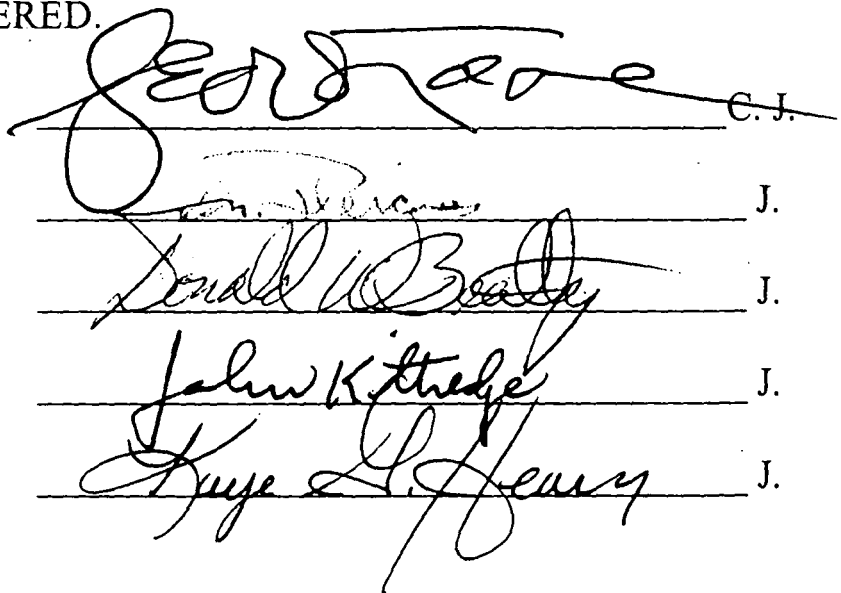 ERED.
C. J.
J.
Donald W. Beatty J.
John Kittredge J.
Kaye G. Hearn J.